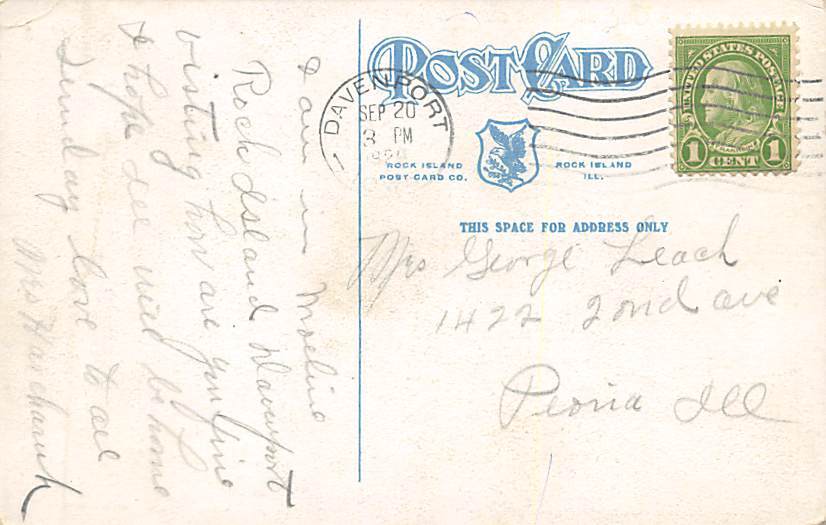 I am in Moeline
Rock Island Davenport
visting how are you fine
I hope will be home
Sunday love to all
Mrs
POST CARD
DAVENPORT
SEP 20
3 PM
ROCK ISLAND
POST CARD CO.
ROCK ISLAND
ILL.
UNITED STATES POSTAGE
FRANKLIN
1 CENT 1
THIS SPACE FOR ADDRESS ONLY
Mrs George Leach
1422 2ond ave
Peoria Ill